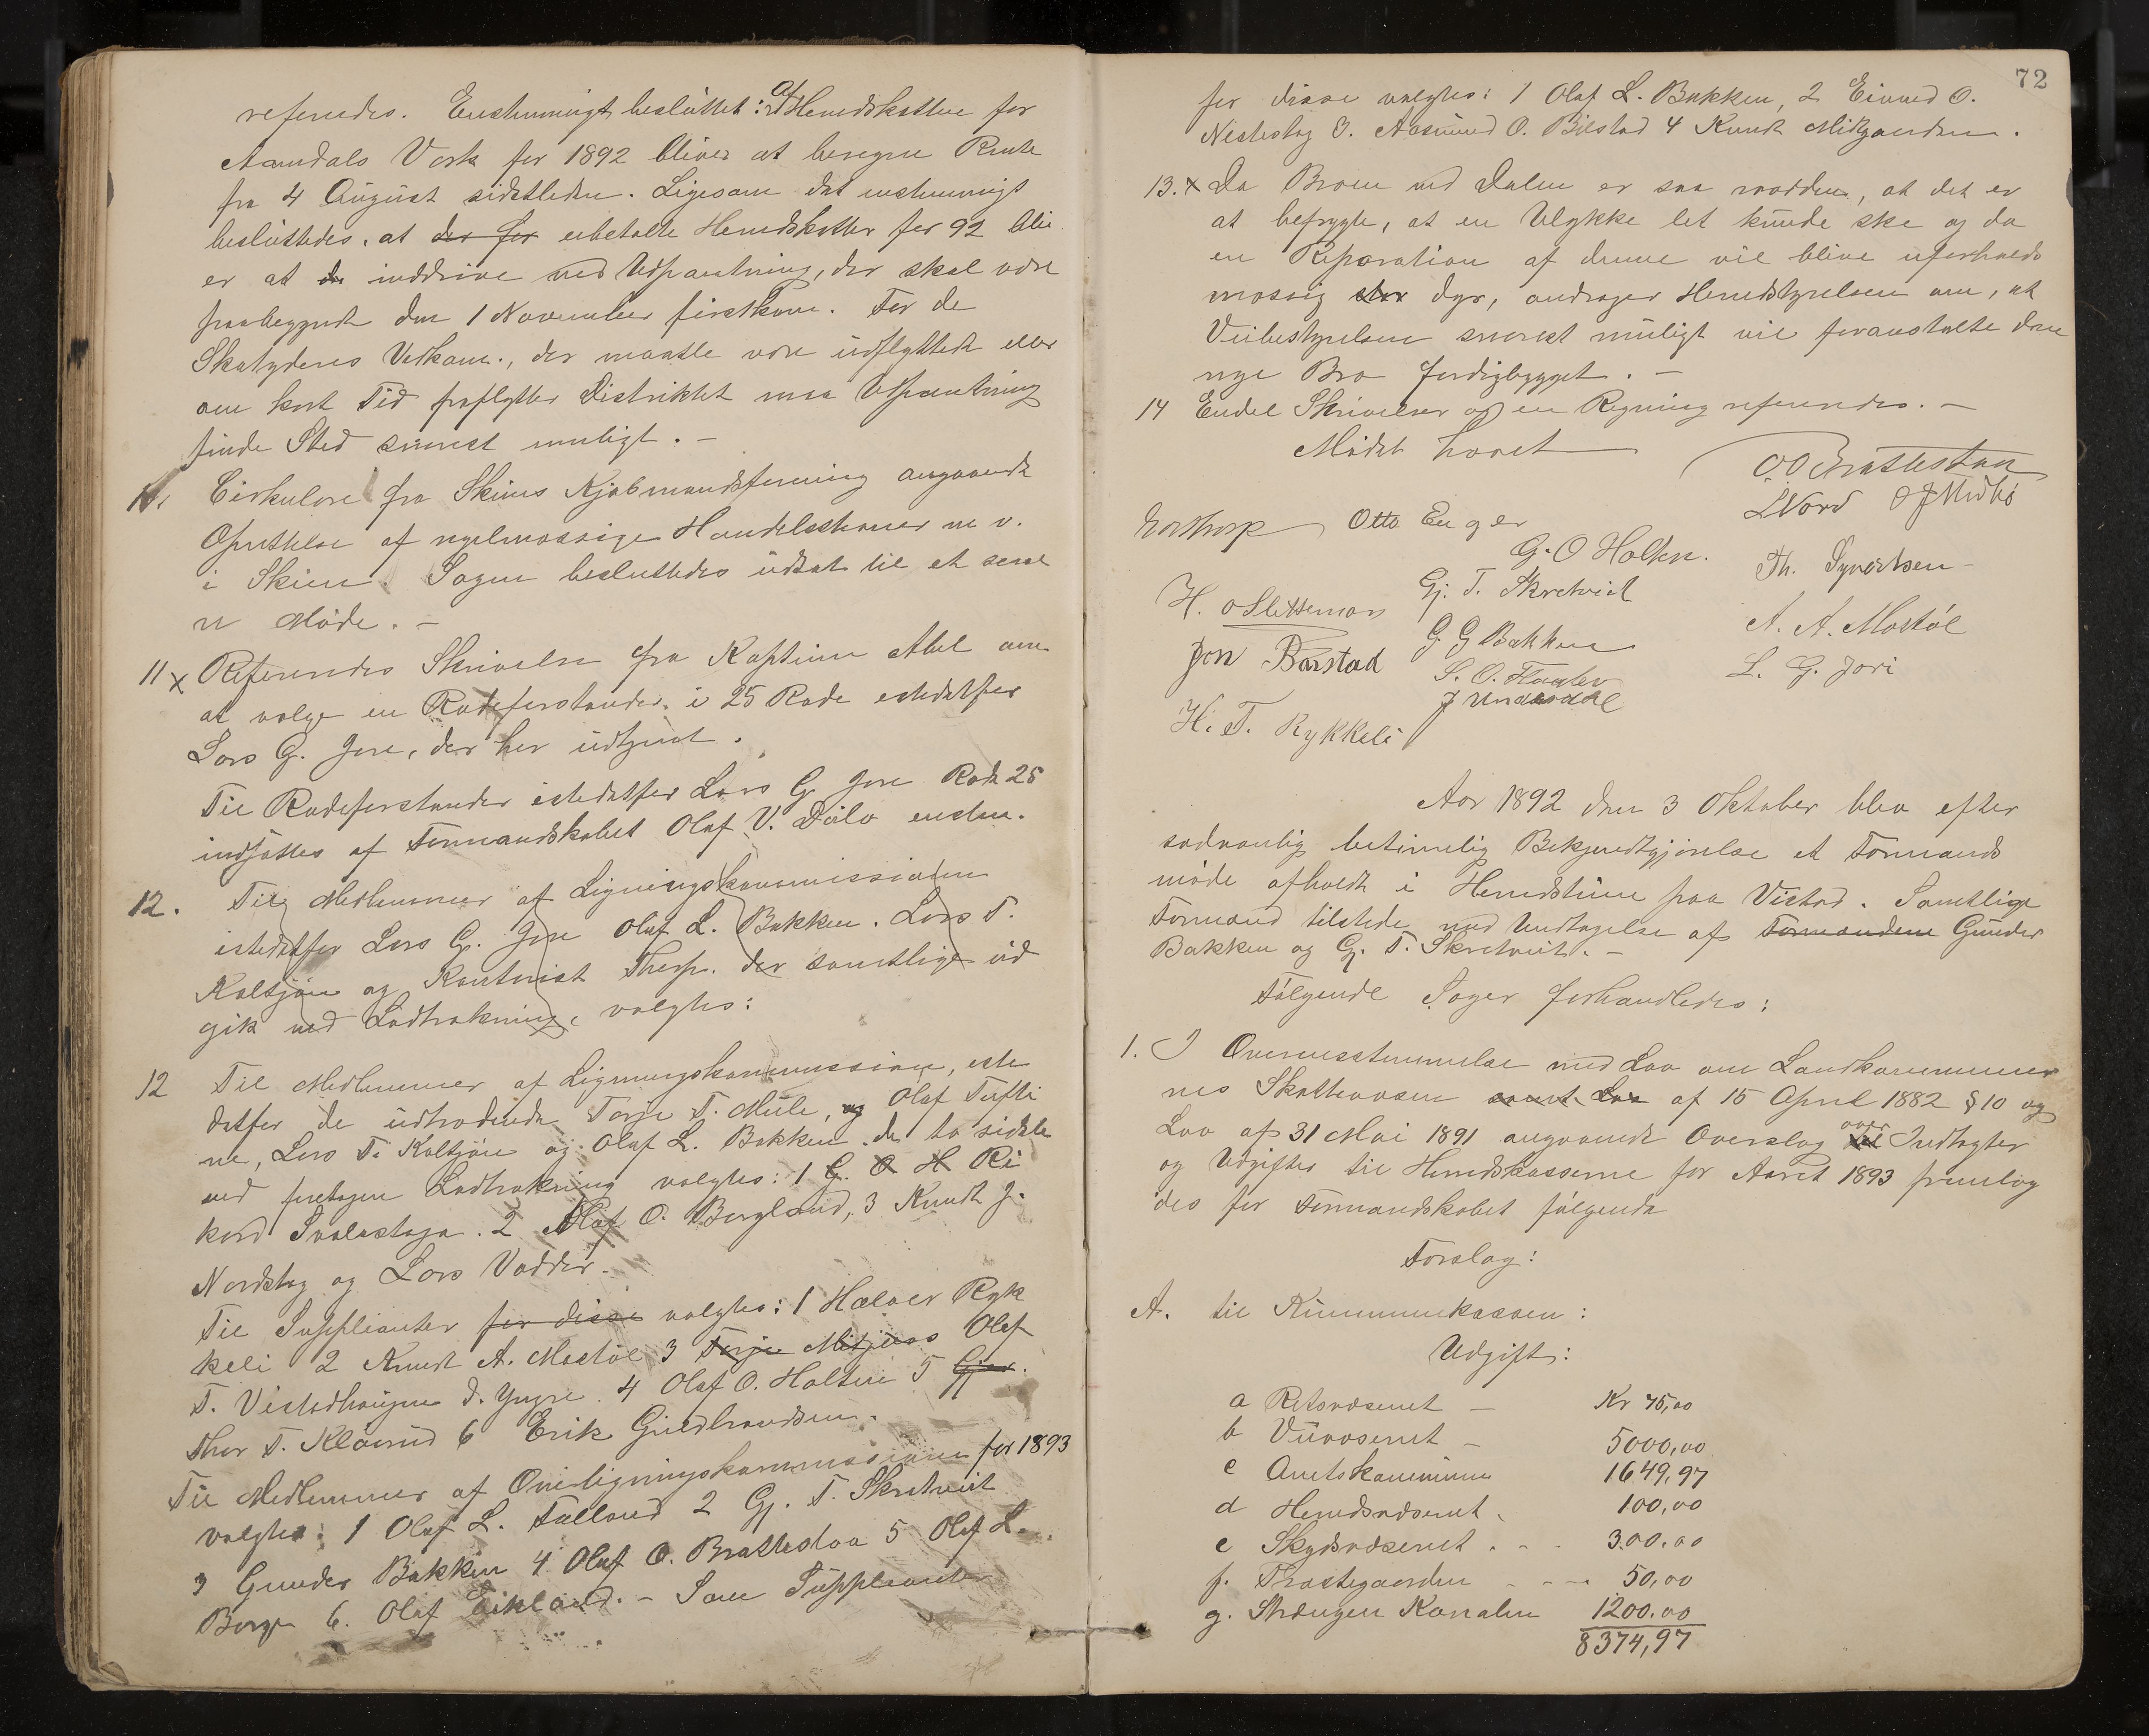 refereredes. Enstemmigt besluttet: at Herredskatten for
Aamdals Værk for 1892 bliver at beregne Rente
fra 4 August sidstleden. Ligesom det enstemmigt
besluttedes, at der for ubetalte Herredskatter for 92 bli
er at de inddrive ved Udpantning, der skal være
paabegyndt den 1 November førstkom. For de
Skatyderes Vedkom., der maatte være udflyttede eller
om kort Tid fraflytter Distriktet maa Udpantning
finde Sted snarest muligt. -
10. Cirkulære fra Skiens Kjøbmandsforening angaaende
Oprettelse af regelmæssige Handelsstevner m. v.
i Skien. Sagen besluttedes udsat til et sene
re Møde. -
11 x Refereredes Skrivelse fra Kaptein Abel om
at vælge en Rodeforstander i 25 Rode istedetfor
Lars G. Jore, der har udtjent.
Til Rodeforstander istedetfor Lars G. Jore Rode 25
indsattes af Formandskabet Olaf V. Dale enstem.
12. Til Medlemmer af Ligningskommissionen
istedetfor Lars G. Jore Olaf L. Bakken. Lars T.
Kaltjøn og Kontorist Thorp. der samtlige ud
gik ved Lodtrækning, valgtes:
12 Til Medlemmer af Ligningskommissionen, iste
detfor de udtrædende Torje T. Mule, og Olaf Tufti
ne, Lars T. Kaltjøn og Olaf L. Bakken, de to sidste
ved foretagen Lodtrækning valgtes: 1 G. O H Ri
kard Svalastoga. 2 Olaf O. Bergland, 3 Knudt J.
Nordstog og Lars Vadder.
Til Suppleanter for disse valgtes: 1 Halvor Ryk
keli 2 Knudt A. Mostøl 3 Torje Mitjaas Olaf
T. Vistadhaugen d. Yngre. 4 Olaf O. Holtene 5 Gjer.
Thor T. Klaurud 6 Erik Guldbrandsen.
Til Medlemmer af Overligningskommissionen for 1893
valgtes: 1 Olaf L. Falland 2 Gj. T. Skretveit
3 Gunder Bakken 4. Olaf O. Brattestaa 5 Olaf L.
Borge 6. Olaf Eikland. - Som Suppleanter
72
for disse valgtes: 1 Olaf L. Bakken, 2 Eivind O.
Nestestog 3. Aasmund O. Bøstad 4 Knudt Midgaarden.
13. x Da Broen ved Dalen er saa raadden, at det er
at befrygte, at en Ulykke let kunde ske og da
en Reparation af denne vil blive uforholds
mæssig stor dyr, andrager Herredstyrelsen om, at
Veibestyrelsen snarest muligt vil foranstalte den
nye Bro færdigbygget. -
14 Endel Skrivelser og en Regning refereredes. -
Mødet hævet
O O Brattestaa
LNord O J Midbø
Otto Enger
G. O Holten.
Th. Syvertsen
H. O Slettemoen
Gj. T. Skretveit
A. A. Mostøl
Jon Børstad
G G Bakken
S. O. Haatev
L. G. Jori
J Underdal
H. T. Rykkeli
Aar 1892 den 3 Oktober blev efter
sædvanlig betimelig Bekjendtgjørelse et Formands
møde afholdt i Herredstuen paa Vistad. Samtlige
Formænd tilstede med Undtagelse af Formændene Gunder
Bakken og Gj. T. Skretveit. -
Følgende Sager forhandledes:
1. I Overensstemmelse med Lov om Landkommuner
nes Skattevæsen samt Lov af 15 April 1882 § 10 og
Lov af 31 Mai 1891 angaaende Overslag over til Indtægter
og Udgifter til Herredskasserne for Aaret 1893 fremlag
des for Formandskabet følgende
Forslag:
A. til Kommunekassen:
Udgift:
a Retsvæsenet - Kr 75,00
b Veivæsenet - 5000,00
c Amtskommunen 1649,97
d Herredsvæsenet. 100,00
e Skydsvæsenet. - - 300.00
f. Præstegaarden - - - 50,00
g. Strængen Kanalen 1200.00
8374,97